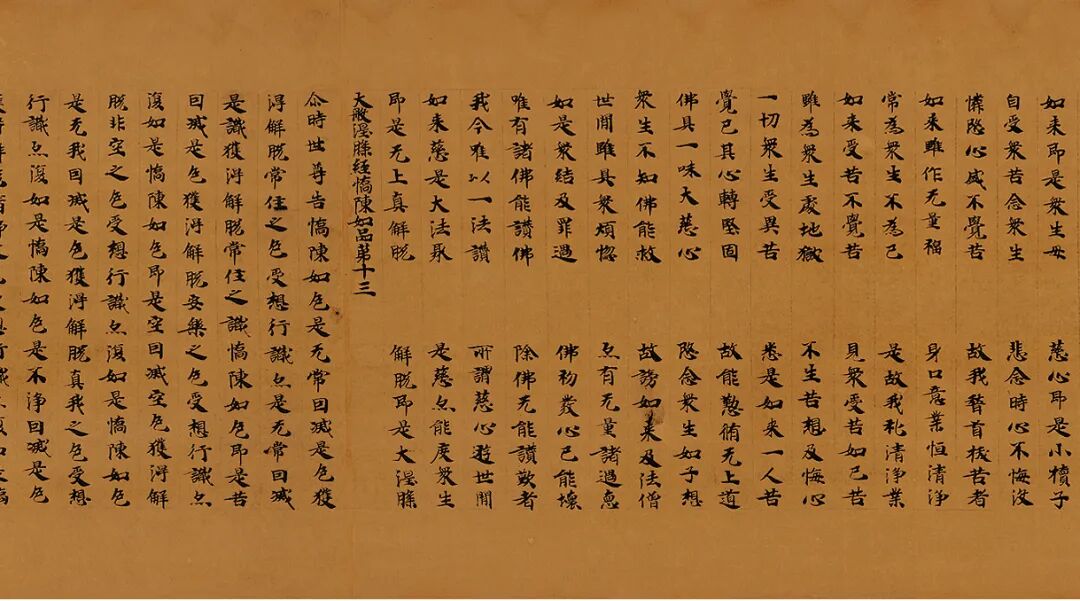 如来即是衆生母 慈心即是小犢子
自受衆苦念衆生 悲念時心不悔没
憐愍心盛不覺苦 故我稽首拔苦者
如来雖作无量福 身口意業恒清浄
常為衆生不為己 是故我礼清浄業
如来受苦不覺苦 見衆受苦如己苦
雖為衆生處地獄 不生苦想及悔心
一切衆生受異苦 悉是如来一人苦
覺已其心轉堅固 故能懃脩无上道
佛具一味大慈心 愍念衆生如子想
衆生不知佛能救 故謗如来及法僧
世間雖具衆煩惱 亦有无量諸過惡
如是衆結及罪過 佛初發心已能壊
唯有諸佛能讚佛 除佛无能讚歎者
我今唯以一法讚 所謂慈心遊世間
如来慈是大法聚 是慈亦能度衆生
即是无上真解脱 解脱即是大涅槃
大般涅槃経憍陳如品第十三
尒時世尊告憍陳如色是无常因滅是色獲
得解脱常住之色受想行識亦是无常因滅
是識獲得解脱常住之識憍陳如色即是苦
因滅是色獲得解脱安樂之色受想行識亦
復如是憍陳如色即是空因滅空色獲得解
脱非空之色受想行識亦復如是憍陳如色
是无我因滅是色獲得解脱真我之色受想
行識亦復如是憍陳如色是不浄因滅是色